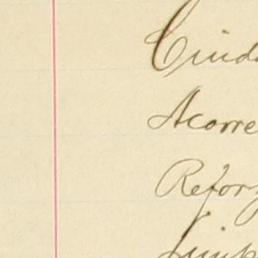 Cinda
Acorre
Reforz
Limp